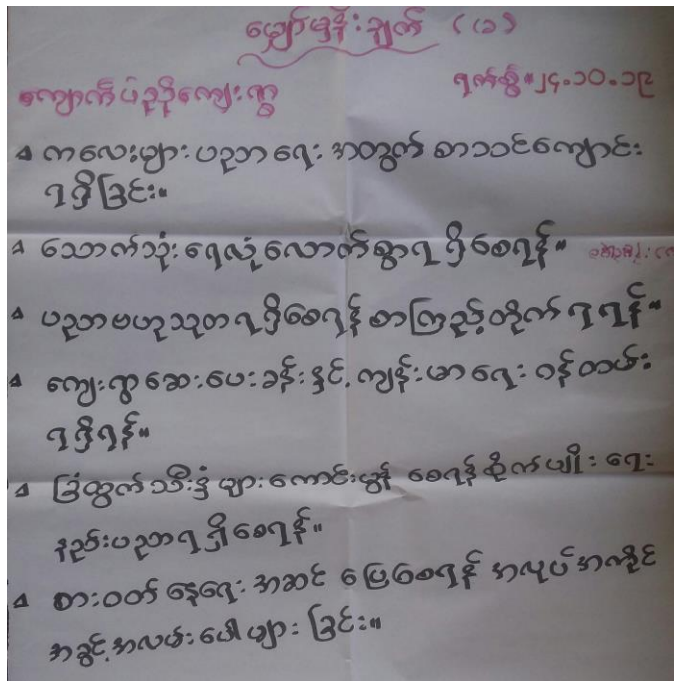 မျှော်မှန်းချက် (၁)
ကျောက်ပံညိုကျေးရွာ ရက်စွဲ။၂၄.၁၀.၁၉
ကလေးများ ပညာရေး အတွက် စာသင်ကျောင်း
ရရှိခြင်း။
သောက်သုံးရေလုံလောက်စွာရရှိစေရန်။
ပညာဗဟုသုတရရှိစေရန် စာကြည့်တိုက် ရရန်။
ကျေးရွာဆေးပေးခန်းနှင့် ကျန်းမာရေး ဝန်ထမ်း
ရရှိရန်။
ခြံထွက်သီးနှံ များကောင်းမွန် စေရန် စိုက်ပျိုး ရေး
နည်းပညာရရှိစေရန်။
စားဝတ်နေရေး အဆင် ပြေစေရန် အလုပ်အကိုင်
အခွင့်အလမ်းပေါများ ခြင်း။